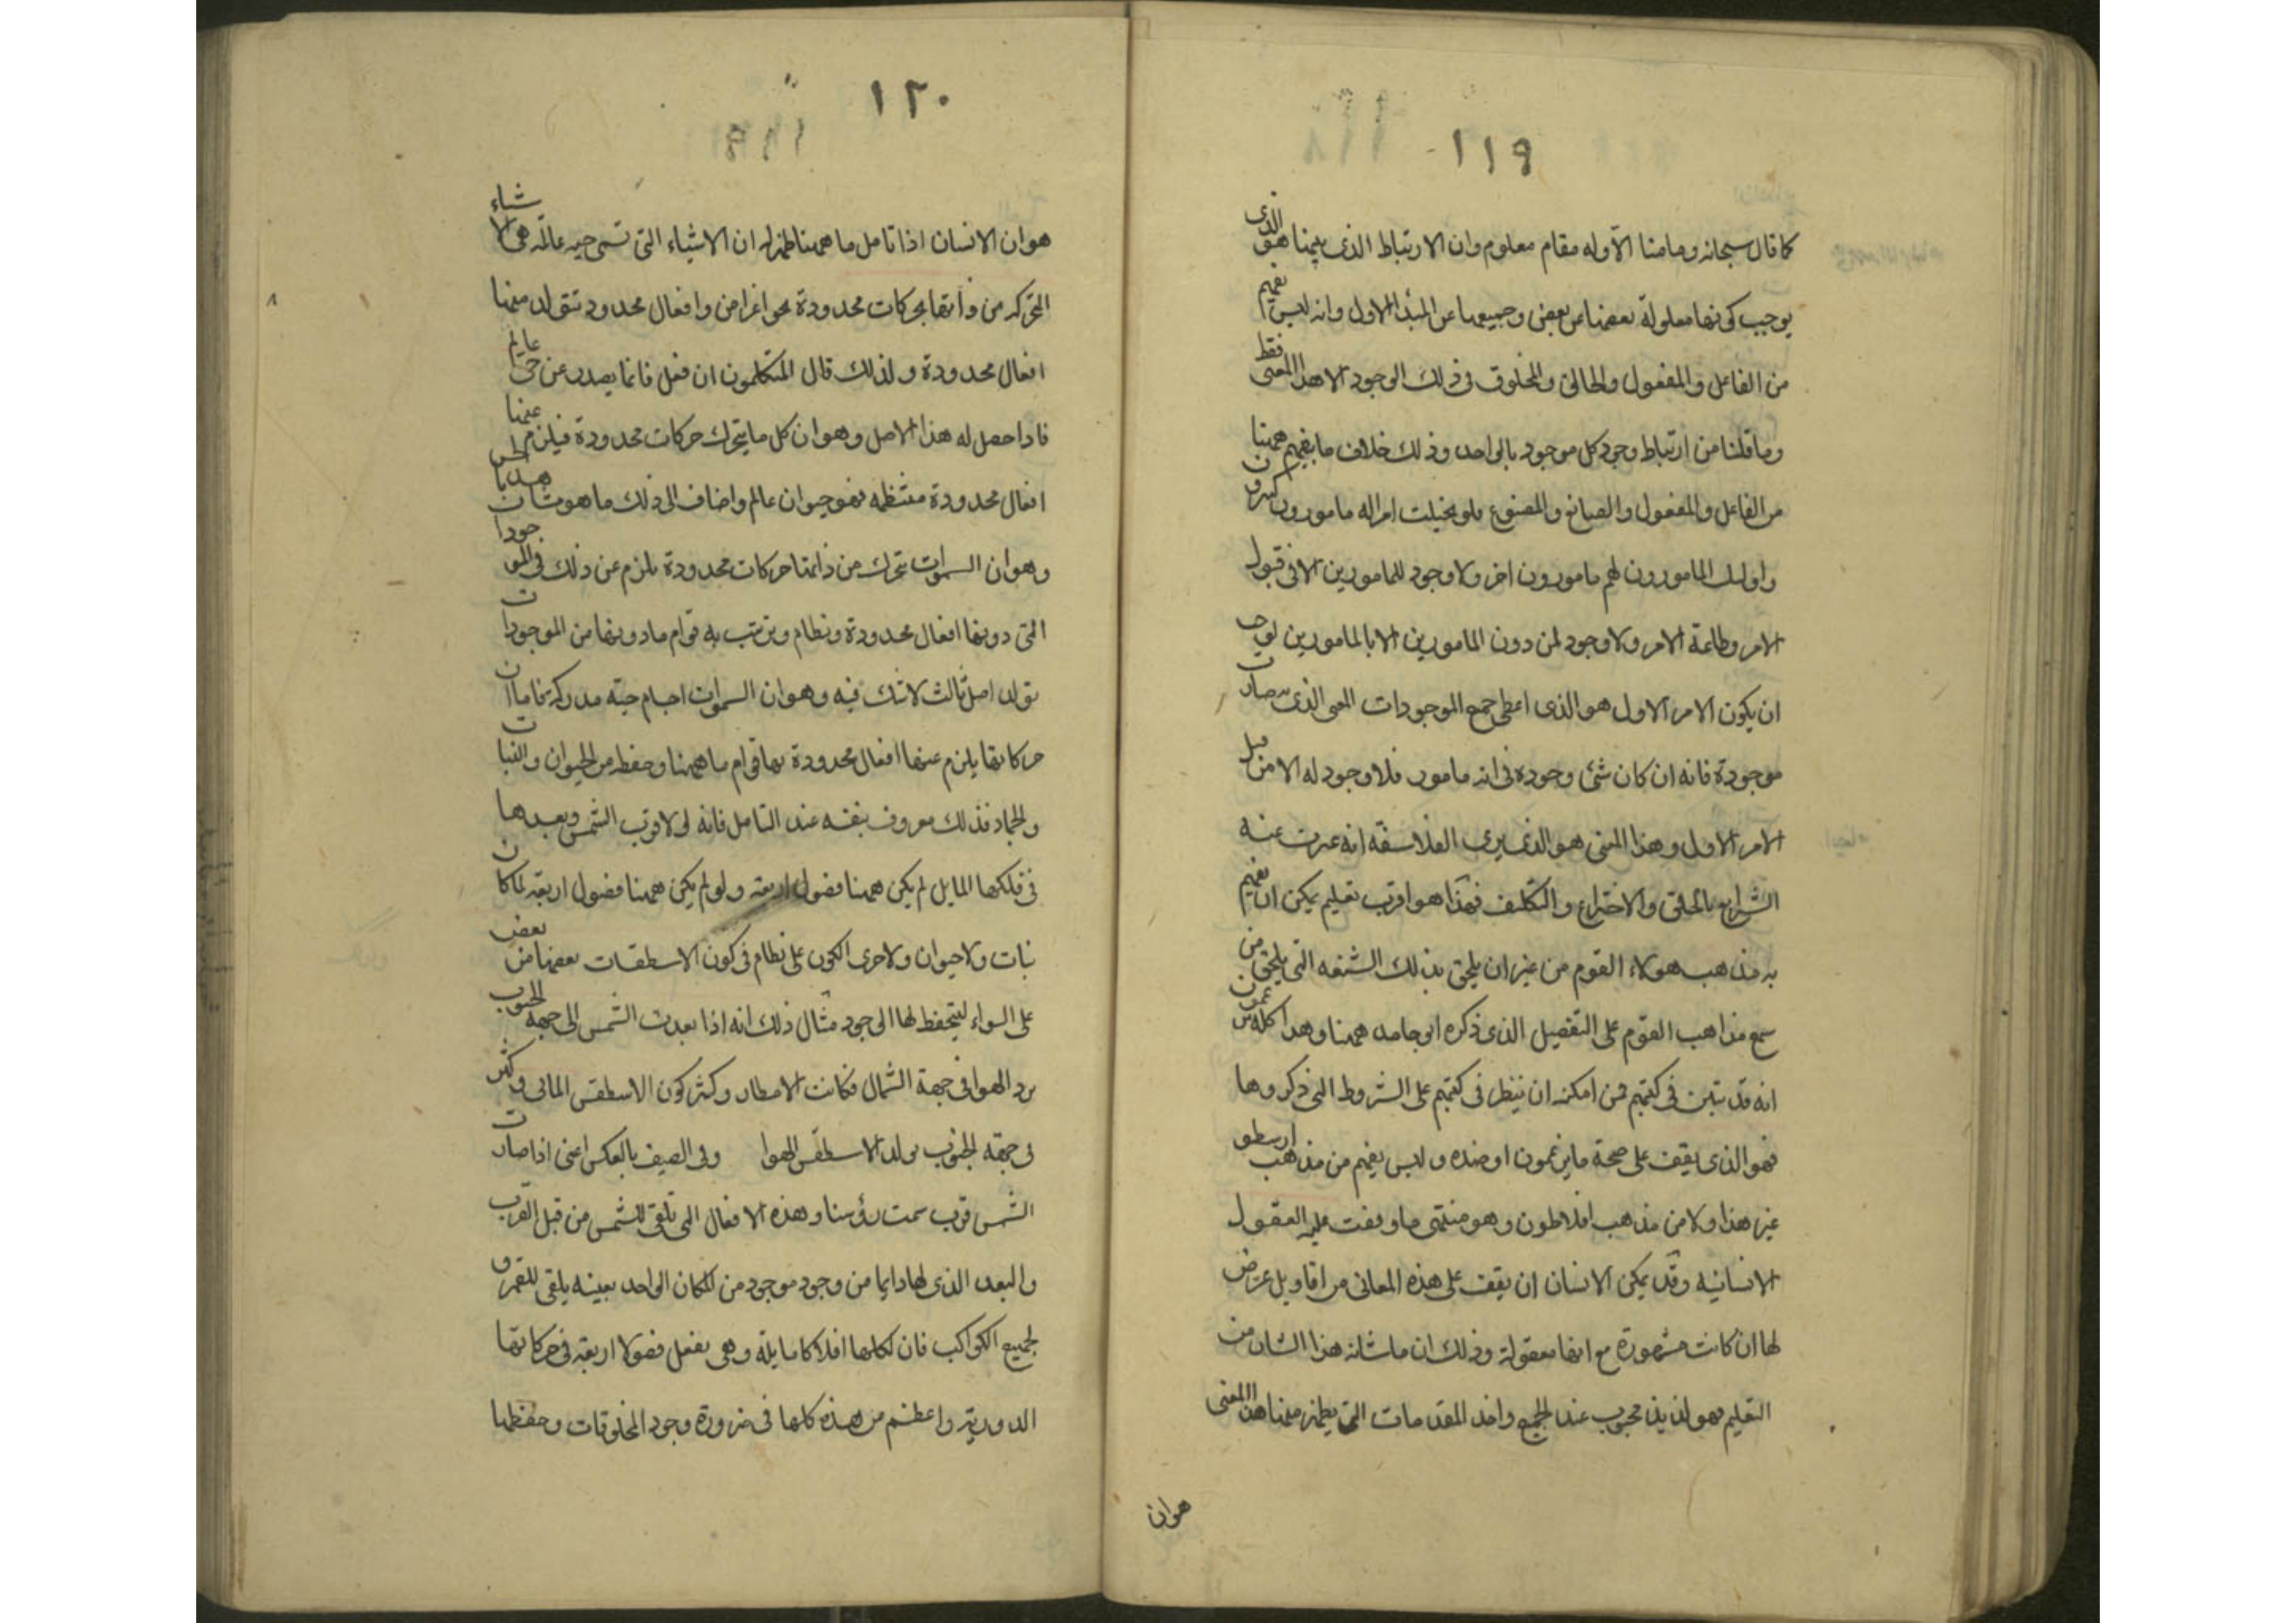 ١١٩
كما قال سبحانه وما منا الا وله مقام معلوم وان الارتباط الذى بينها هو الذى
يوجب كونها معلولة بعضها عن بعض وجميعها عن المبدأ الاول وانه ليس يفهم
من الفاعل والمفعول والخالق والمخلوق فى ذلك الوجود الا هذا المعنى فقط
وما قلنا من ارتباط وجود كل موجود بالواحد وذلك خلاف ما يفهم ههنا
من الفاعل والمفعول والصانع والمصنوع فلو تخيلت امرا له مامورون كثيرون
واولئك المامورون لهم مامورون اخر ولا وجود للمامورين الا فى قبول
الامر وطاعة الامر ولا وجود لمن دون المامورين الا بالمامورين لوجب
ان يكون الامر الاول هو الذى اعطى جميع الموجودات المعنى الذى به صارت
موجودة فانه ان كان شئ وجوده فى انه مامور فلا وجود له الا من قبل
الامر الاول وهذا المعنى هو الذى يرى الفلاسفة انه عبرت عنه
الشرايع بالخلق والاختراع والتكليف فهذا هو اقرب تعليم يمكن ان يفهم
به مذهب هولاء القوم من غير ان يلحق بذلك الشنعه التى يلحق من
سمع مذاهب القوم على التفصيل الذى ذكره ابو حامد ههنا وهذا كله يزعمون
انه قد تبين فى كتبهم فمن امكنه ان ينظر فى كتبهم على الشروط التى ذكروها
فهو الذى يقف على صحة ما يزعمون او ضده وليس يفهم من مذهب ارسطو
غير هذا ولا من مذهب افلاطون وهو منتهى ما وقفت عليه العقول
الانسانيه وقد يمكن الانسان ان يقف على هذه المعانى من اقاويل عرض
لها ان كانت مشهورة مع انها معقولة وذلك ان ما شانه هذا الشان من
التعليم فهو لذيذ محبوب عند الجميع واحد المقدمات التى يظهر منها هذا المعنى
هو ان
١٢٠
هو ان الانسان اذا تامل ما ههنا ظهر له ان الاشياء التى تسمى حيه عالمة هى الاشياء
المتحركه من ذاتها بحركات محدودة نحو اغراض وافعال محدود تتولد منها
افعال محدودة ولذلك قال المتكلمون ان فعل فانما يصدر عن حى عالم
فاذا حصل له هذا الاصل وهو ان كل ما يتحرك حركات محدودة فيلزم عنها
افعال محدودة منتظمه فهو حيوان عالم واضاف الى ذلك ما هو مشاهد بالحس
وهو ان السموات تتحرك من ذاتها حركات محدودة يلزم عن ذلك فى الموجودات
التى دونها افعال محدودة ونظام وترتيب به قوام ما دونها من الموجودات
تولد اصل ثالث لا شك فيه وهو ان السموات اجسام حيه مدركه فاما ان
حركاتها يلزم عنها افعال محدودة بها قوام ما ههنا وحفظه من الحيوان والنبات
والجماد فذلك معروف بنفسه عند التامل فانه لولا قرب الشمس وبعدها
فى فلكها المايل لم يكن ههنا فصول اربعه ولو لم يكن ههنا فصول اربعة لما كان
نبات ولا حيوان ولا جرى الكون على نظام فى كون الاسطقسات بعضها من بعض
على السواء ليتحفظ لها الوجود مثال ذلك انه اذا بعدت الشمس الى جهه الجنوب
برد الهوا فى جهة الشمال فكانت الامطار وكثر كون الاسطقس المائى وكثر
فى جهه الجنوب تولد الاسطقس الهوا وفى الصيف بالعكس اعنى اذا صارت
الشمس قرب سمت رؤسنا وهذه الافعال التى تلقى للشمس من قبل القرب
والبعد الذى لها دايما من وجود موجود من المكان الواحد بعينه يلقى للقمر و
لجميع الكواكب فان لكلها افلاكا مايلة وهى تفعل فصولا اربعة فى حركاتها
الدورية واعظم من هذه كلها فى ضرورة وجود المخلوقات وحفظها